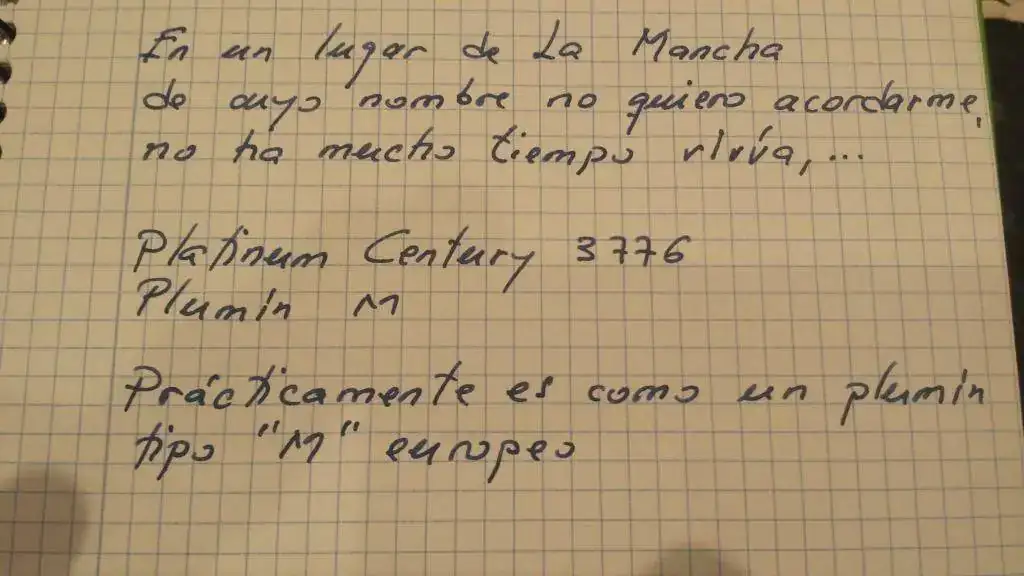 En un lugar de La Mancha
de cuyo nombre no quiero acordarme,
no ha mucho tiempo vivía,...
Platinum Century 3776
Plumín M
Prácticamente es como un plumín
tipo "M" europeo